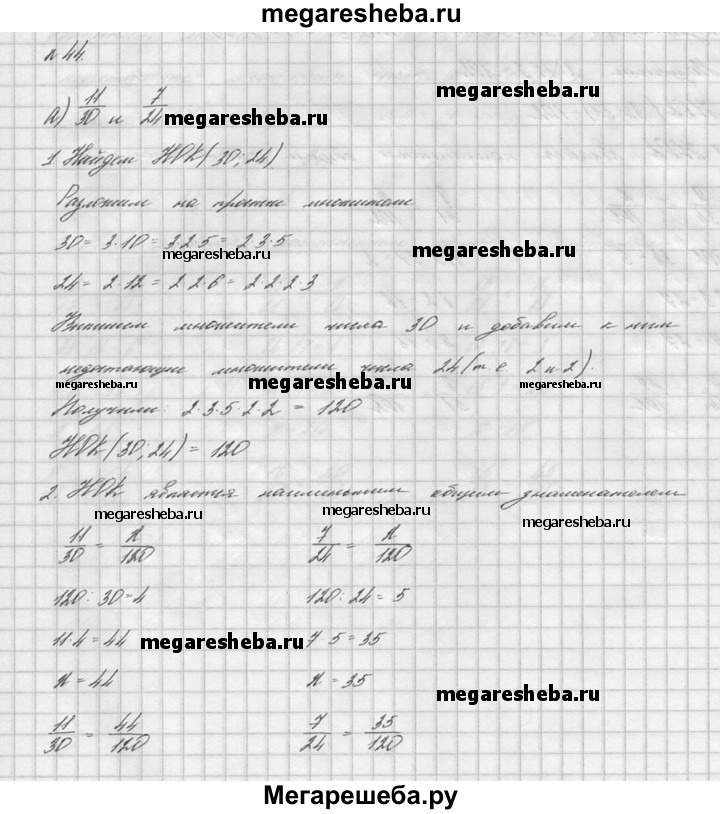 megaresheba.ru
п 44.
megaresheba.ru
а) 11/30 и 7/24 megaresheba.ru
1. Найдем НОК(30, 24)
Разложим на простые множители
30 = 3·10 = 3·2·5 = 2·3·5
megaresheba.ru megaresheba.ru
24 = 2·12 = 2·2·6 = 2·2·2·3
Выпишем множители числа 30 и добавим к ним
недостающие множители числа 24 (т е 2 и 2).
megaresheba.ru megaresheba.ru megaresheba.ru
Получили: 2·3·5·2·2 = 120
НОК(30, 24) = 120
2. НОК является наименьшим общим знаменателем
megaresheba.ru megaresheba.ru megaresheba.ru
11/30 = x/120 7/24 = x/120
120 : 30 = 4 120 : 24 = 5
11·4 = 44 megaresheba.ru 7 5 = 35
x = 44 x = 35
megaresheba.ru
11/30 = 44/120 7/24 = 35/120
Мегарешеба.ру